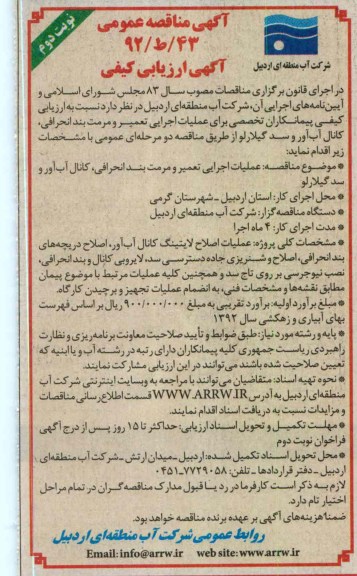 آگهی مناقصه عمومی
۹۲/ط/۴۳
آگهی ارزیابی کیفی
نوبت دوم
شرکت آب منطقه‌ای اردبیل
در اجرای قانون برگزاری مناقصات مصوب سال ۸۳ مجلس شورای اسلامی و
آیین‌نامه‌های اجرایی آن، شرکت آب منطقه‌ای اردبیل در نظر دارد نسبت به ارزیابی
کیفی پیمانکاران تخصصی برای عملیات اجرایی تعمیر و مرمت بند انحرافی،
کانال آب‌آور و سد گیلارلو از طریق مناقصه دو مرحله‌ای عمومی با مشخصات
زیر اقدام نماید:
* موضوع مناقصه: عملیات اجرایی تعمیر و مرمت بند انحرافی، کانال آب‌آور و
سد گیلارلو
* محل اجرای کار: استان اردبیل - شهرستان گرمی
* دستگاه مناقصه‌گزار: شرکت آب منطقه‌ای اردبیل
* مدت اجرای کار: ۴ ماه اجرا
* مشخصات کلی پروژه: عملیات اصلاح لاینینگ کانال آب‌آور، اصلاح دریچه‌های
بند انحرافی، اصلاح و شن‌ریزی جاده دسترسی سد، لایروبی کانال و بند انحرافی،
نصب نیوجرسی بر روی تاج سد و همچنین کلیه عملیات مرتبط با موضوع پیمان
مطابق نقشه‌ها و مشخصات فنی، به انضمام عملیات تجهیز و برچیدن کارگاه.
* مبلغ برآورد اولیه: برآورد تقریبی به مبلغ ۹۰۰/۰۰۰/۰۰۰ ریال بر اساس فهرست
بهای آبیاری و زهکشی سال ۱۳۹۲
* پایه و رشته مورد نیاز: طبق ضوابط و تأیید صلاحیت معاونت برنامه‌ریزی و نظارت
راهبردی ریاست جمهوری کلیه پیمانکاران دارای رتبه در رشته آب و یا ابنیه که
تعیین صلاحیت شده باشند می‌توانند در این ارزیابی مشارکت نمایند.
* نحوه تهیه اسناد: متقاضیان می‌توانند با مراجعه به وبسایت اینترنتی شرکت آب
منطقه‌ای اردبیل به آدرس WWW.ARRW.IR قسمت اطلاع‌رسانی مناقصات
و مزایدات نسبت به دریافت اسناد اقدام نمایند.
* مهلت تکمیل و تحویل اسناد ارزیابی: حداکثر تا ۱۵ روز پس از درج آگهی
فراخوان نوبت دوم
* محل تحویل اسناد تکمیل شده: اردبیل - میدان ارتش - شرکت آب منطقه‌ای
اردبیل - دفتر قراردادها - تلفن: ۷۷۲۹۰۵۸-۰۴۵۱
لازم به ذکر است کارفرما در رد یا قبول مدارک مناقصه‌گران در تمام مراحل
اختیار تام دارد.
ضمنا هزینه‌های آگهی بر عهده برنده مناقصه خواهد بود.
روابط عمومی شرکت آب منطقه‌ای اردبیل
Email: info@arrw.ir web site: www.arrw.ir